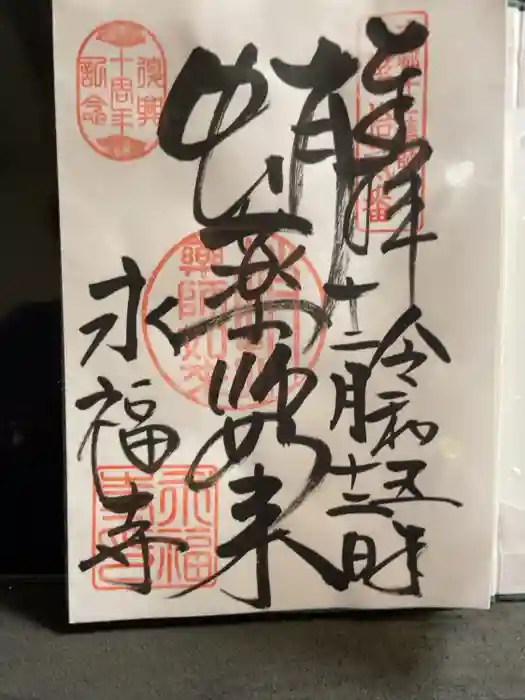 奉拝
令和五年
十二月十二日
蛸薬師如来
永福寺
復興
十周年
記念